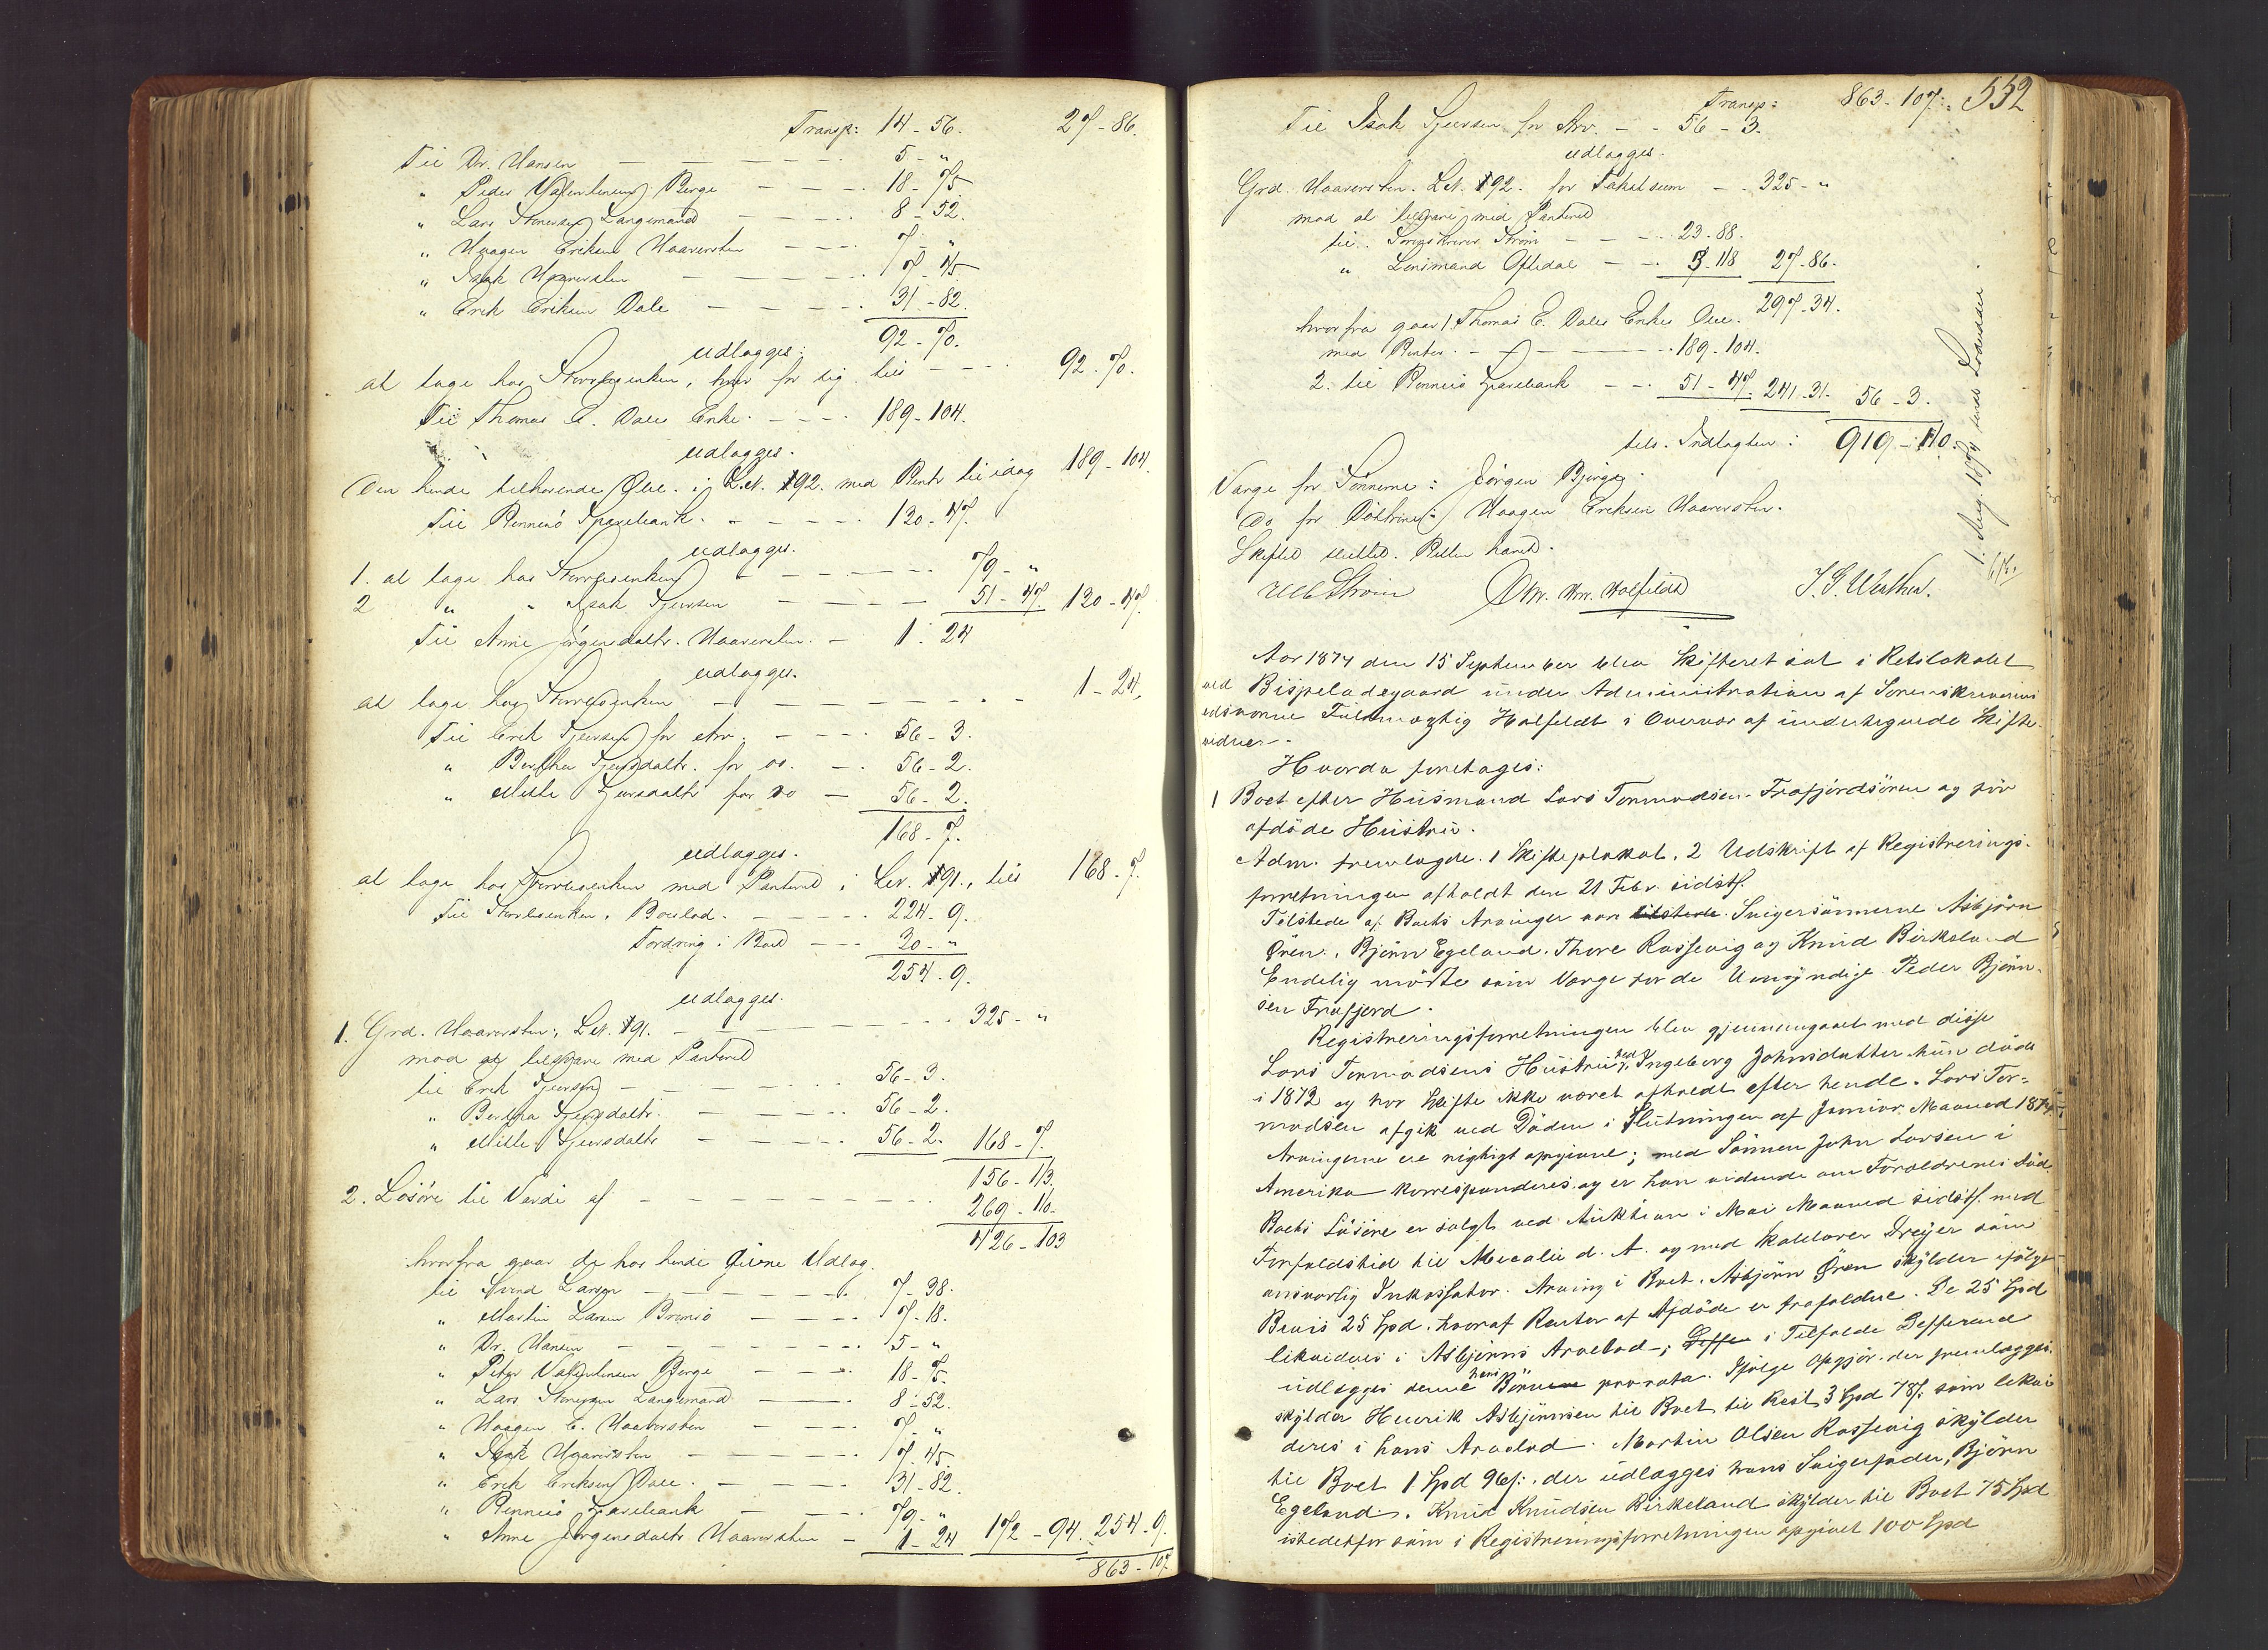 Transp: 14 - 56. 27 - 86.
Til Dr. Hansen — — — — 5 - "
" Peder Valentinsen Berge — — — 18 - 75
" Lars Størersen Langemand — — — 8 - 52.
" Haagen Eriksen Haaversten — — — 7 - "
" Isak Haaversten — — — — 17 - 45
" Erik Eriksen Dale — — — — 31 - 82.
92 - 70.
udlægges:
at tage hos Stervboenken, hver for sig tils — — — 92. 70.
Til Thomas E. Dales Enke. — — — 189 - 104.
udlægges.
Den hende tilhørende Obl. i L.N. 192. med Renter til idag 189 - 104.
Til Rennesø Sparebank. — — — 130. 47.
udlægges.
1. at tage hos Stervboenken — — — — 79 - "
2 " " Isak Sjursen — — — 51 - 47. 130 - 47.
Til Anne Jørgensdatter. Haaversten. — 1. 24
udlægges.
at tage hos Stervboenken — — — — — 1 - 24.
Til Erik Sjursen for Arv. — — — 56 - 3.
" Berthe Sjursdatter. for do. — — 56 - 2.
" Mille Sjursdatter for do — 56 - 2.
168 - 7.
udlægges.
at tage hos Stervboenken med Panteret i L.N. 191., tils 168 - 7.
Til Stervboenken, Boeslod. — — — 224 - 9.
Fordring i Boet — — 30 - "
254 - 9.
udlægges.
1. Grd. Haaversten, L.N. 191. — — — — 325 - "
mod at tilsvare med Panteret
til Erik Sjursen — — — 56 - 3.
" Berthe Sjursdatter. — — — 56 - 2.
" Mille Sjursdatter — — — 56 - 2. 168 - 7.
156 - 113.
2. Løsøre til Værdi af — — — — 269 - 110.
426 - 103
hvorfra gaar de hos hende givne Udlæg.
til Svend Larsen — — — — 7 - 38.
" Martin Larsen Bremsø — — — 17 - 18.
" Dr. Hansen — — — — 5 - "
" Peter Valentinsen Berge — — 18 - 75.
" Lars Størersen Langemand — — 8 - 52.
" Haagen E. Haaversten — — 7 - "
" Isak Haaversten — — — 17. 45.
" Erik Eriksen Dale. — — — 31 - 82.
" Rennesø Sparebank — — — 79 - "
" Anne Jørgensdatter Haaversten — 1 - 24 172 - 94. 254 - 9.
863 - 107.
Transp: 863 - 107. 552
Til Isak Sjursen for Arv. — — 56 - 3.
udlægges.
Grd. Haaversten. L.N. 192. for Taxtsum — . 325 - "
mod at tilsvare med Panteret
til Sorenskriver Strøm — — — 23 - 88.
" Lensmand Oftedal — — 3 - 118 27 - 86.
297 - 34.
hvorfra gaar 1. Thomas E. Dales Enkes Obl.
med Renter. — — — — 189 - 104.
2. til Rennesø Sparebank — — 51 - 47. 241 - 31. 56 - 3.
tils. Indtægten: 919 - 110.
Værge for Sønnerne: Jørgen Bjerga.
Do for Døttrene: Haagen Eriksen Haaversten.
Skiftet sluttet. Retten hævet.
1. Aug. 1874
Strøm Chr. Holfeldt
Aar 1874 den 15 September blev Skifteret sat i Retslokalet
ved Bispeladegaard under Administration af Sorenskriverens
edsvorne Fuldmægtig Holfeldt i Overvær af undertegnede Skifte-
vidner.
Hvorda foretages:
1 Boet efter Husmand Lars Tormodsen Frafjordsøren og før
afdøde Hustru.
Adm. fremlagde. 1 Skifteplakat, 2 Udskrift af Registrerings-
forretningen afholdt den 21 Febr. sidstl.
Tilstede af Boets Arvinger var tilstede Svigersønnerne Asbjørn
Øren, Bjørn Egeland, Thore Røssevig og Knud Birkeland
Endelig mødte som Værge for de Umyndige Peder Bjørn-
sen Frafjord.
Registreringsforretningen blev gjennemgaaet med disse
Lars Tormodsens Hustru hed Ingeborg Johnsdatter hun døde
i 1872 og har Skifte ikke været afholdt efter hende. Lars Tor-
modsen afgik ved Døden i Slutningen af Januar Maaned 1874
Arvingerne ere rigtigt opgivne; med Sønnen John Larsen i
Amerika korresponderes og er han vidende om Forældrenes Død.
Boets Løsøre er solgt ved Auktion i Mai Maaned sidstl. med
Forfaldstid til Micalie d. A. og med Skoldover Dreyer som
ansvarlig Inkassator. Arving i Boet, Asbjørn Øren skylder ifølge
Bevis 25 Spd. hvoraf Renter af Afdøde er frafaldne. De 25 Spd
likvideres i Asbjørns Arvelod; i Tilfælde Defferende
udlægges denne hans Børn prorata. Ifølge Opgjør. der fremlægges
skylder Henrik Asbjørnsen til Boet til Rest 3 Spd 78 ß. som likvi-
deres i hans Arvelod. Martin Olsen Røssevig skylder
til Boet 1 Spd 96 ß. der udlægges hans Svigerfader, Bjørn
Egeland. Knud Knudsen Birkeland skylder til Boet 75 Spd
istedetfor som i Registreringsforretningen opgivet 100 Spd